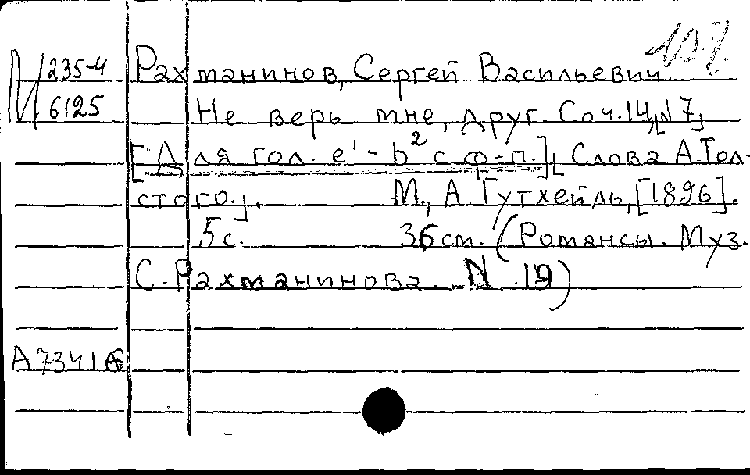 М 235-4 Рахманинов, Сергей Васильевич
6125 Не верь мне, друг. Соч. 14, N 7,
[Для гол. e¹ - b² с ф-п.], Слова А. Тол-
стого]. М., А. Гутхейль, [1896].
5 с. 36 см. (Романсы. Муз.
С. Рахманинова. N 19)
А 7341